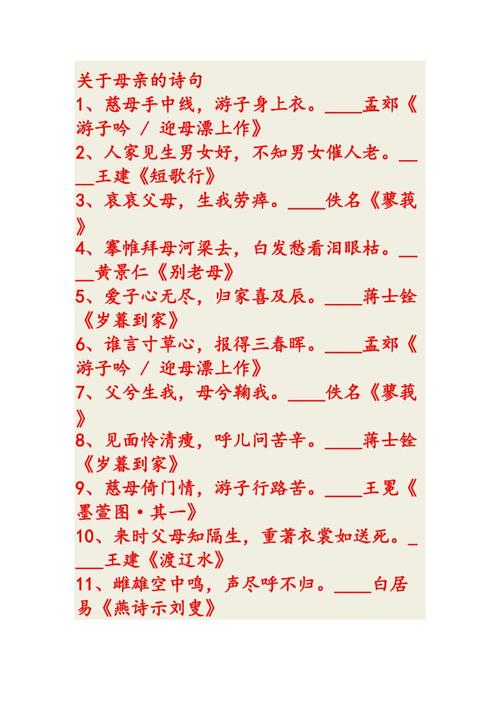 关于母亲的诗句
1、慈母手中线，游子身上衣。____孟郊《
游子吟 / 迎母漂上作》
2、人家见生男女好，不知男女催人老。__
__王建《短歌行》
3、哀哀父母，生我劳瘁。____佚名《蓼莪
》
4、搴帷拜母河梁去，白发愁看泪眼枯。__
__黄景仁《别老母》
5、爱子心无尽，归家喜及辰。____蒋士铨
《岁暮到家》
6、谁言寸草心，报得三春晖。____孟郊《
游子吟 / 迎母漂上作》
7、父兮生我，母兮鞠我。____佚名《蓼莪
》
8、见面怜清瘦，呼儿问苦辛。____蒋士铨
《岁暮到家》
9、慈母倚门情，游子行路苦。____王冕《
墨萱图·其一》
10、来时父母知隔生，重著衣裳如送死。_
___王建《渡辽水》
11、雌雄空中鸣，声尽呼不归。____白居
易《燕诗示刘叟》